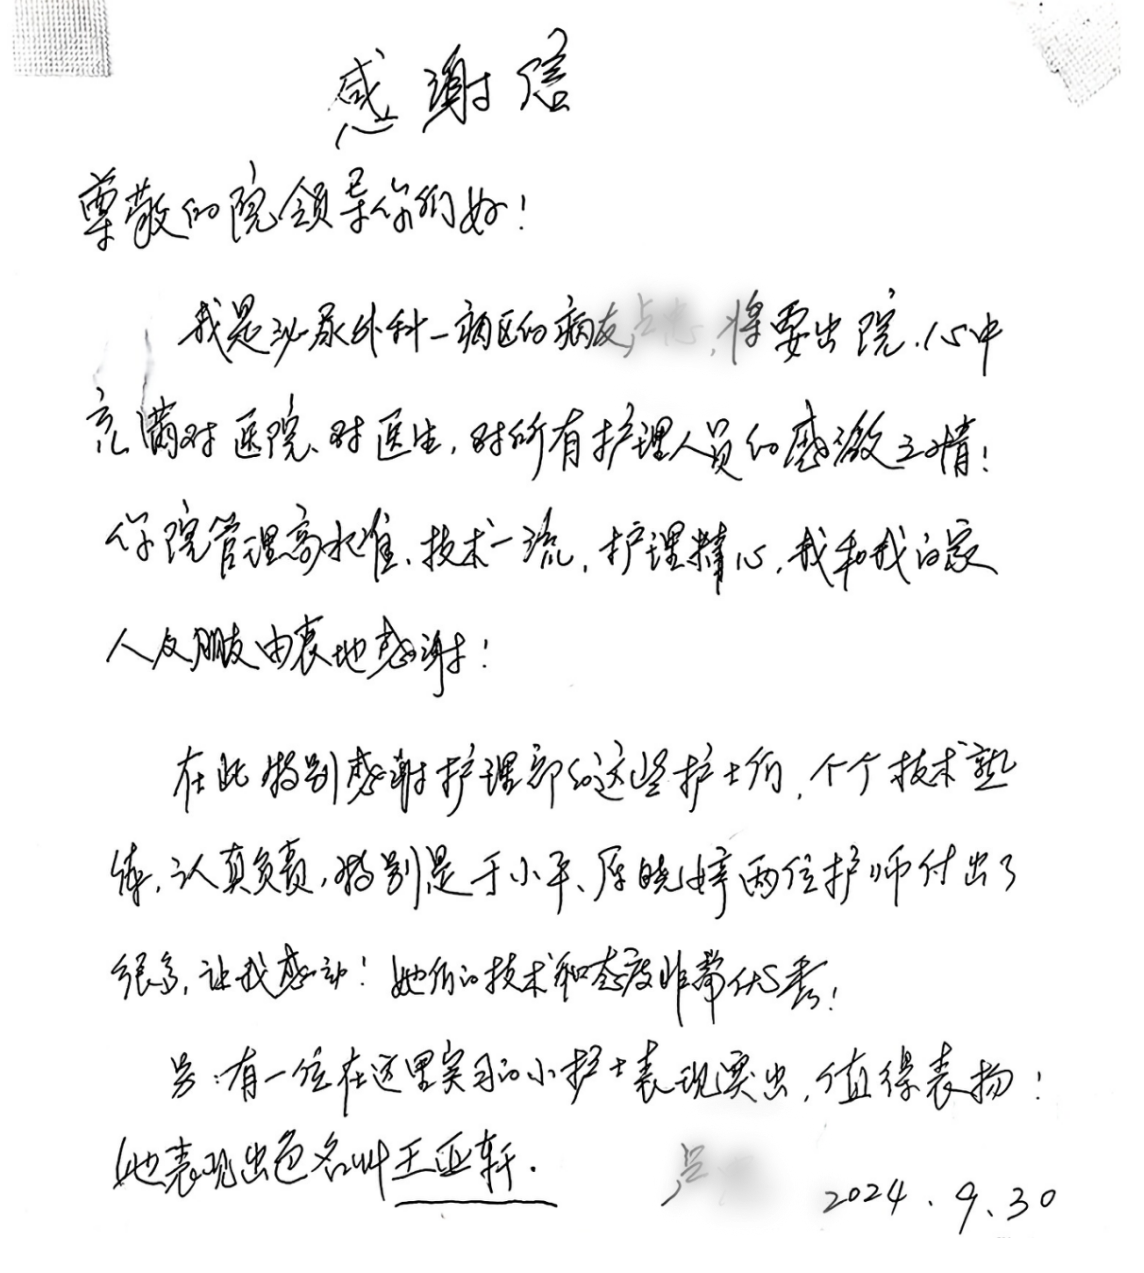 感谢信
尊敬的院领导你们好！
我是泌尿外科一病区的病友，将要出院，心中
充满对医院、对医生，对所有护理人员的感激之情！
你院管理高水准、技术一流，护理精心，我和我的家
人及朋友由衷地感谢！
在此特别感谢护理部的这些护士们，个个技术熟
练，认真负责，特别是于小平、厍晓婷两位护师付出了
很多，让我感动！她们的技术和态度非常优秀！
另有一位在这里实习的小护士表现突出，值得表扬！
她表现出色名叫王亚轩．
2024．9．30